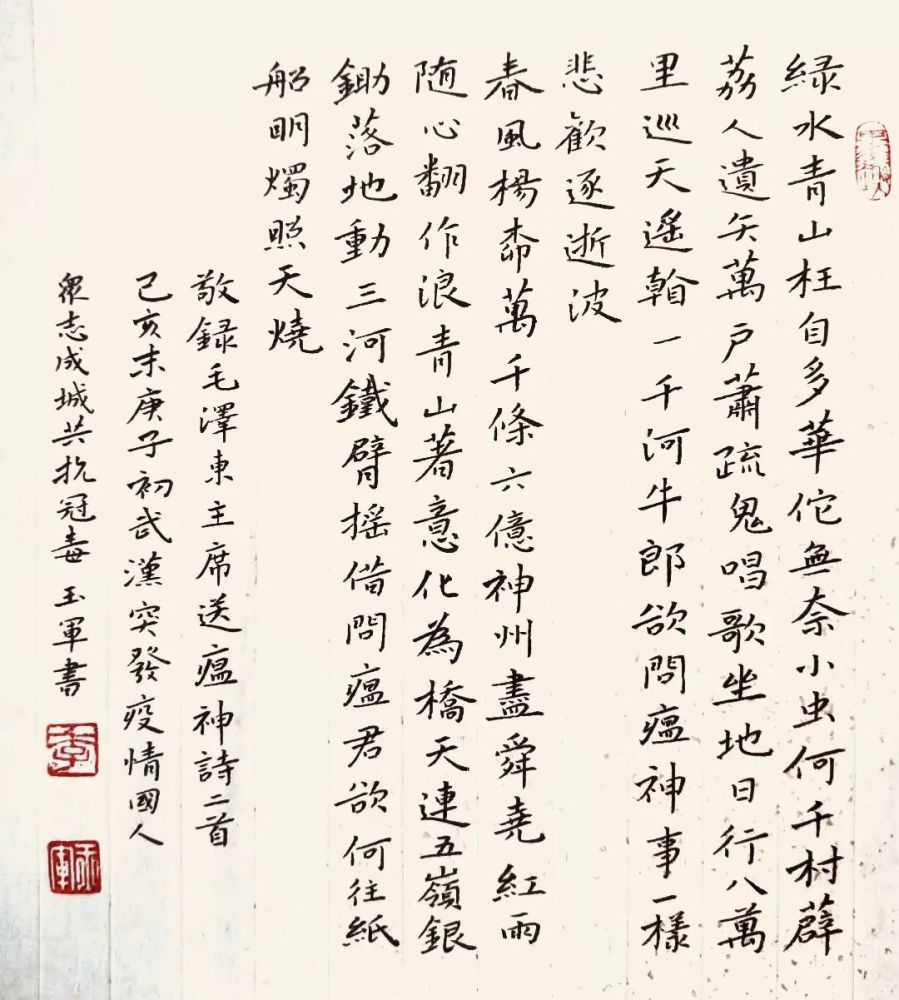 緑水青山枉自多華佗無奈小虫何千村薜
荔人遺矢萬戶蕭疏鬼唱歌坐地日行八萬
里巡天遙翰一千河牛郎欲問瘟神事一樣
悲歡逐逝波
春風楊柳萬千條六億神州盡舜堯紅雨
隨心翻作浪青山著意化為橋天連五嶺銀
鋤落地動三河鐵臂搖借問瘟君欲何往紙
船明燭照天燒
敬録毛澤東主席送瘟神詩二首
己亥末庚子初武漢突發疫情國人
眾志成城共抗冠毒 玉軍書